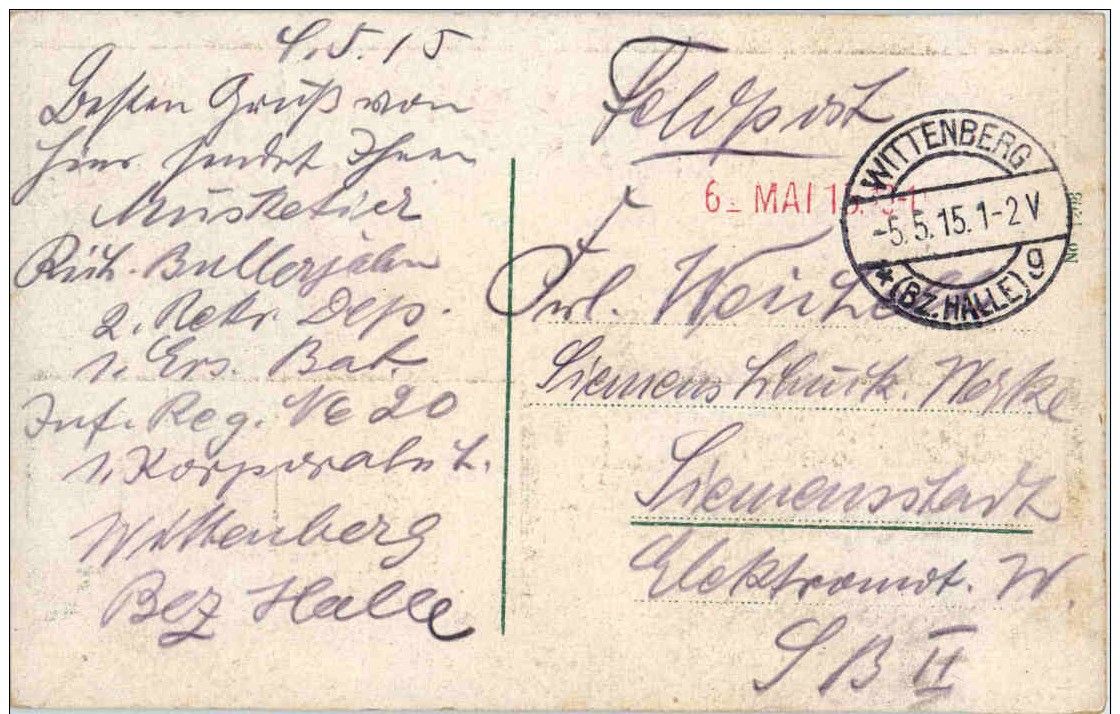 5.15
Besten Gruß von
hier sendet Ihnen
Musketier
Rich. Bullerjahn
2. Rekr. Dep.
1. Ers. Bat.
Inf. Reg. No 20
1. Korporalsch.
Wittenberg
Bez Halle
Feldpost
6_ MAI 15.
WITTENBERG
-5.5.15.1-2V
*(BZ. HALLE) g
Frl.
Siemens Schuck. Werke
Siemensstadt
Elektromot. W.
SB II